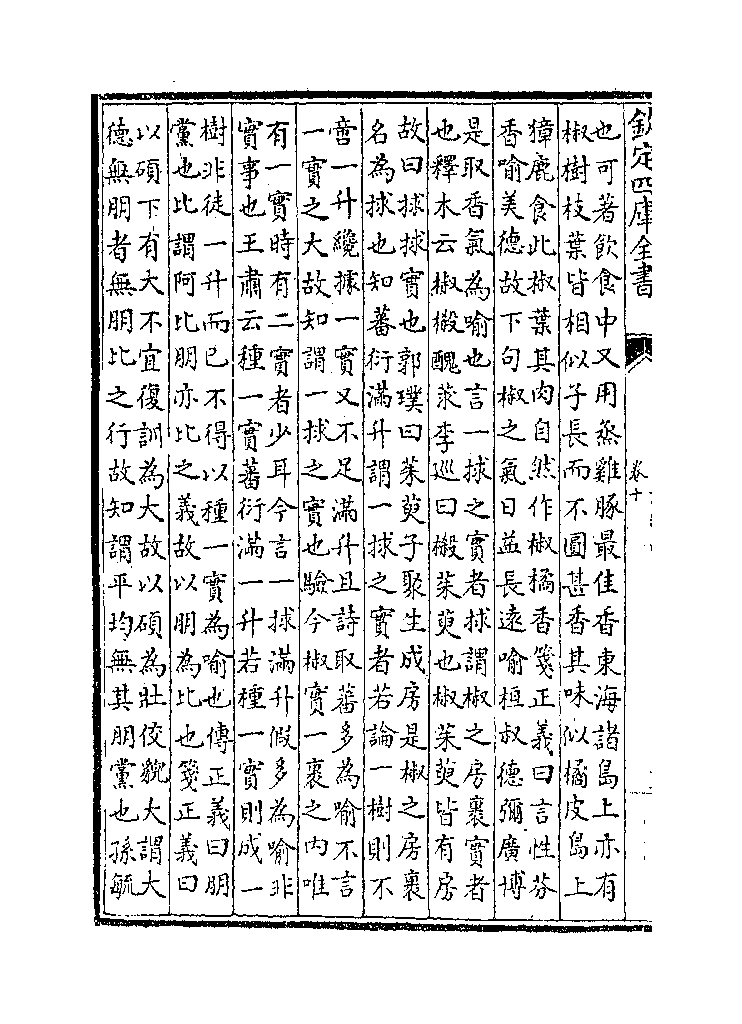 欽定四庫全書
卷十
也可著飲食中又用蒸雞豚最佳香東海諸島上亦有
椒樹枝葉皆相似子長而不圓甚香其味似橘皮島上
獐鹿食此椒葉其肉自然作椒橘香箋正義曰言性芬
香喻美德故下句椒之氣日益長遠喻桓叔德彌廣博
是取香氣為喻也言一捄之實者捄謂椒之房裏實者
也釋木云椒樧醜莍李巡曰樧茱萸也椒茱萸皆有房
故曰捄捄實也郭璞曰茱萸子聚生成房是椒之房裏
名為捄也知蕃衍滿升謂一捄之實者若論一樹則不
啻一升纔據一實又不足滿升且詩取蕃多為喻不言
一實之大故知謂一捄之實也驗今椒實一裹之内唯
有一實時有二實者少耳今言一捄滿升假多為喻非
實事也王肅云種一實蕃衍滿一升若種一實則成一
樹非徒一升而已不得以種一實為喻也傳正義曰朋
黨也比謂阿比朋亦比之義故以朋為比也箋正義曰
以碩下有大不宜復訓為大故以碩為壯佼貌大謂大
德無朋者無朋比之行故知謂平均無其朋黨也孫毓